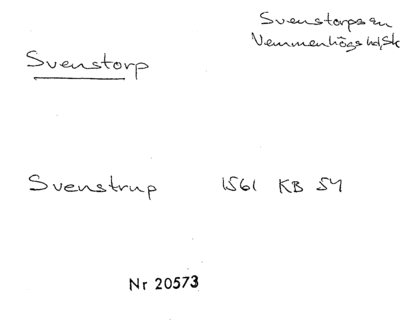 Svenstorps sn
Vemmenhögs hd, Sk
Svenstorp
Svenstrup 1561 KB 54
Nr 20573